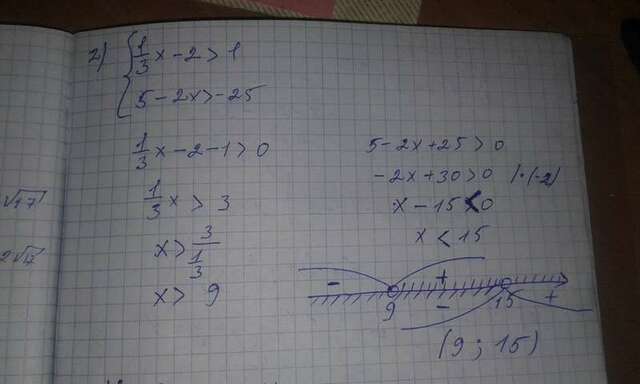 2) { 1/3 x - 2 > 1
5 - 2x > -25
1/3 x - 2 - 1 > 0
1/3 x > 3
x > 3 / 1/3
x > 9
5 - 2x + 25 > 0
-2x + 30 > 0 | · (-2)
x - 15 < 0
x < 15
- + +
9 - 15
(9 ; 15)
√17